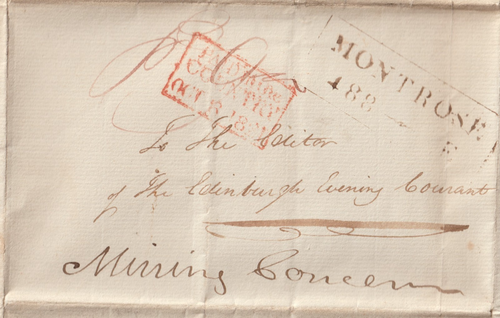 MONTROSE
488 E
OCT 18
To The Editor
of The Edinburgh Evening Courant
Mining Concern